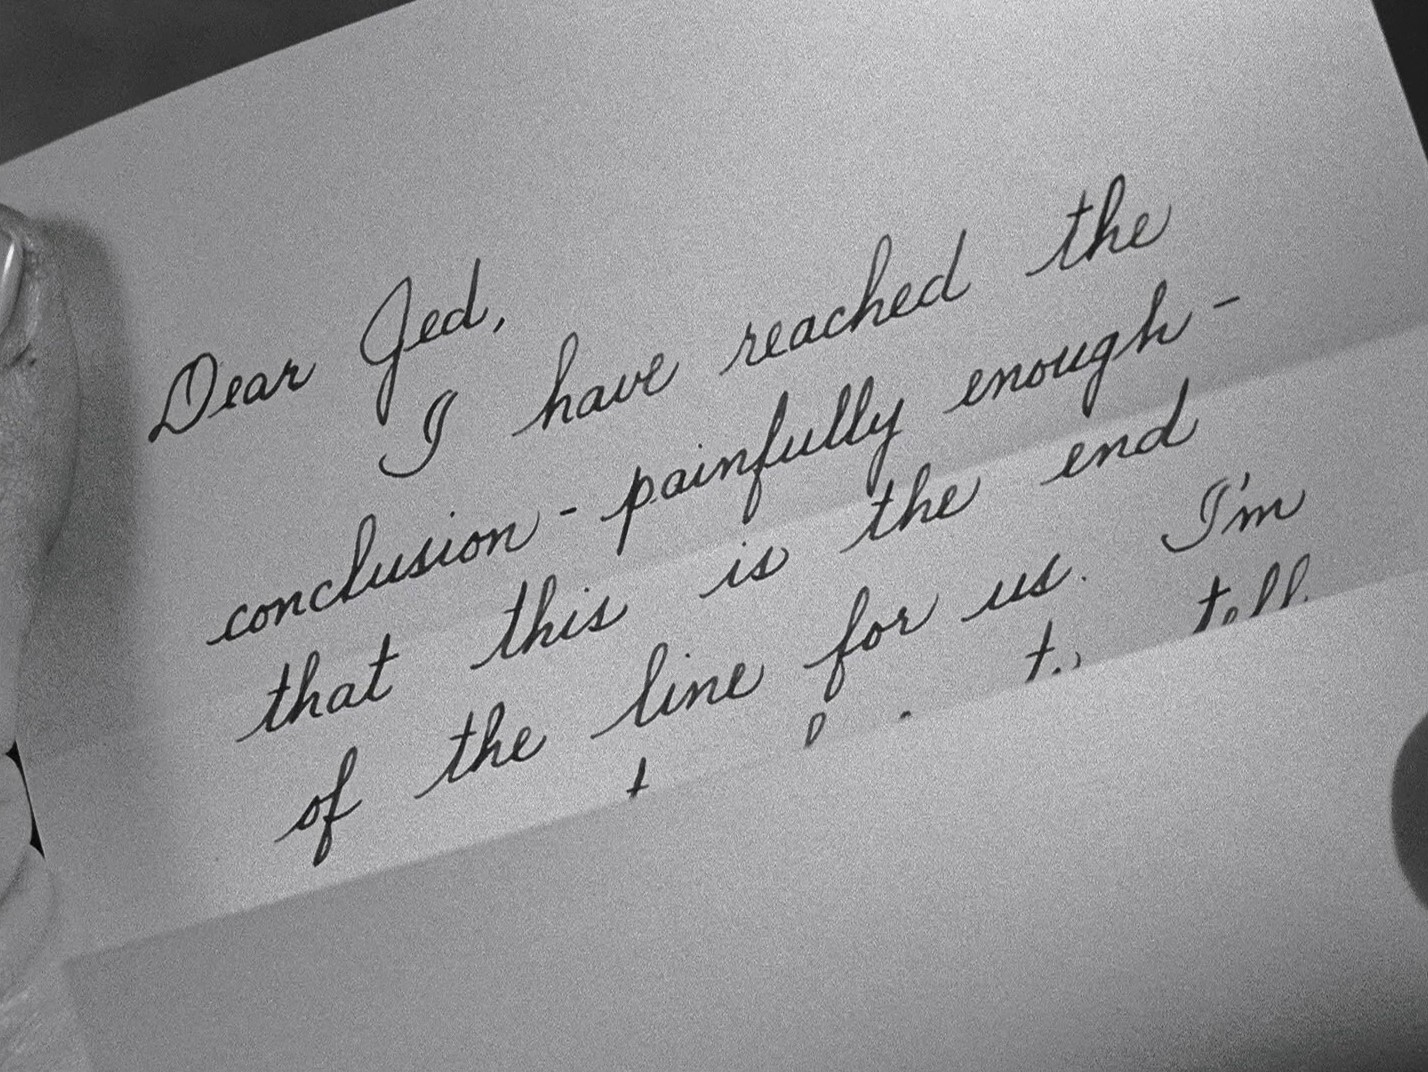 Dear Jed,
I have reached the
conclusion - painfully enough -
that this is the end
of the line for us. I'm
tell